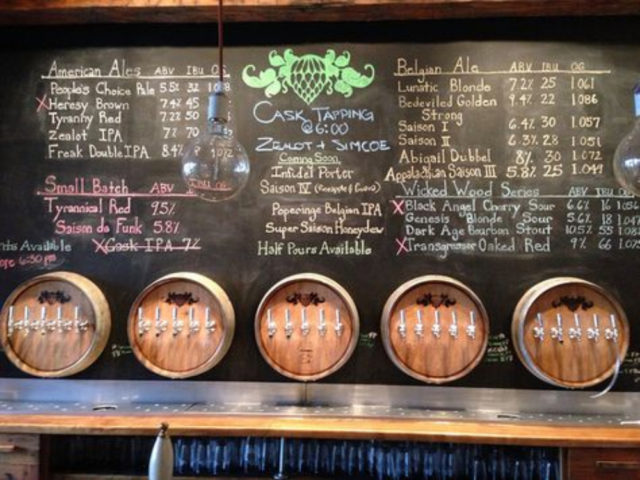 American Ales ABV IBU OG
People's Choice Pale 5.5% 32
X Heresy Brown 7.4% 45
Tyranny Red 7.2% 50
Zealot IPA 7% 70
Freak Double IPA 8.4%
Small Batch ABV IBU OG
Tyrannical Red 9.5%
Saison da Funk 5.8%
X Cask IPA 7%
Available
6:30 pm
Cask Tapping
@6:00
Zealot + Simcoe
Coming Soon
Infidel Porter
Saison IV (Pineapple & Guava)
Poperinge Belgian IPA
Super Saison Honeydew
Half Pours Available
Belgian Ale ABV IBU OG
Lunatic Blonde 7.2% 25 1.061
Bedeviled Golden 9.4% 22 1.086
Strong
Saison I 6.4% 30 1.057
Saison II 6.3% 28 1.051
Abigail Dubbel 8% 30 1.072
Appalachian Saison III 5.8% 25 1.044
Wicked Wood Series ABV IBU OG
X Black Angel Cherry Sour 6.6% 16
Genesis Blonde Sour 5.6% 18
Dark Age Bourbon Stout 10.5% 55
X Transgressor Oaked Red 9% 66